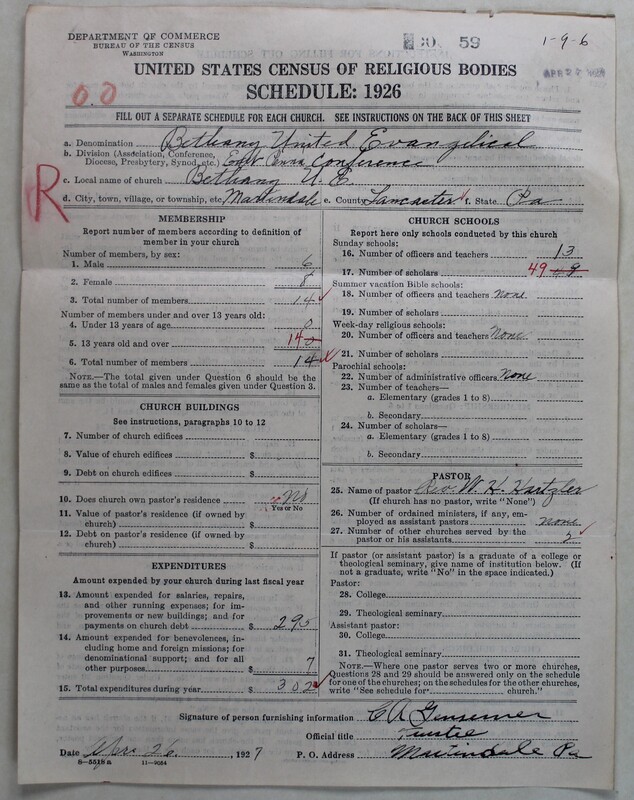 DEPARTMENT OF COMMERCE
BUREAU OF THE CENSUS
WASHINGTON
59
1-9-6
UNITED STATES CENSUS OF RELIGIOUS BODIES
SCHEDULE: 1926
FILL OUT A SEPARATE SCHEDULE FOR EACH CHURCH. SEE INSTRUCTIONS ON THE BACK OF THIS SHEET
a. Denomination Bethany United Evangelical
b. Division (Association, Conference, Diocese, Presbytery, Synod, etc.) East Penna Conference
R
c. Local name of church Bethany U. E.
d. City, town, village, or township, etc. Martindale e. County Lancaster f. State Pa
MEMBERSHIP
Report number of members according to definition of
member in your church
Number of members, by sex:
1. Male 6
2. Female 8
3. Total number of members 14
Number of members under and over 13 years old:
4. Under 13 years of age 0
5. 13 years old and over 14
6. Total number of members 14
NOTE.—The total given under Question 6 should be
the same as the total of males and females given under Question 3.
CHURCH BUILDINGS
See instructions, paragraphs 10 to 12
7. Number of church edifices
8. Value of church edifices $
9. Debt on church edifices $
10. Does church own pastor's residence No
Yes or No
11. Value of pastor's residence (if owned by
church) $
12. Debt on pastor's residence (if owned by
church) $
EXPENDITURES
Amount expended by your church during last fiscal year
13. Amount expended for salaries, repairs,
and other running expenses; for im-
provements or new buildings; and for
payments on church debt $ 295
14. Amount expended for benevolences, in-
cluding home and foreign missions; for
denominational support; and for all
other purposes $ 7
15. Total expenditures during year $ 302
CHURCH SCHOOLS
Report here only schools conducted by this church
Sunday schools:
16. Number of officers and teachers 13
17. Number of scholars 49
Summer vacation Bible schools:
18. Number of officers and teachers none
19. Number of scholars
Week-day religious schools:
20. Number of officers and teachers None
21. Number of scholars
Parochial schools:
22. Number of administrative officers None
23. Number of teachers—
a. Elementary (grades 1 to 8)
b. Secondary
24. Number of scholars—
a. Elementary (grades 1 to 8)
b. Secondary
PASTOR
25. Name of pastor Rev. W. H. Hartzler
(If church has no pastor, write "None")
26. Number of ordained ministers, if any, em-
ployed as assistant pastors none
27. Number of other churches served by the
pastor or his assistants 2
If pastor (or assistant pastor) is a graduate of a college or
theological seminary, give name of institution below. (If
not a graduate, write "No" in the space indicated.)
Pastor:
28. College
29. Theological seminary
Assistant pastor:
30. College
31. Theological seminary
NOTE.—Where one pastor serves two or more churches,
Questions 28 and 29 should be answered only on the schedule
for one of the churches; on the schedules for the other churches,
write "See schedule for church."
Signature of person furnishing information C A
Official title Trustee
Date 26, 1927 P. O. Address Martindale Pa
8-5518a 11-9054